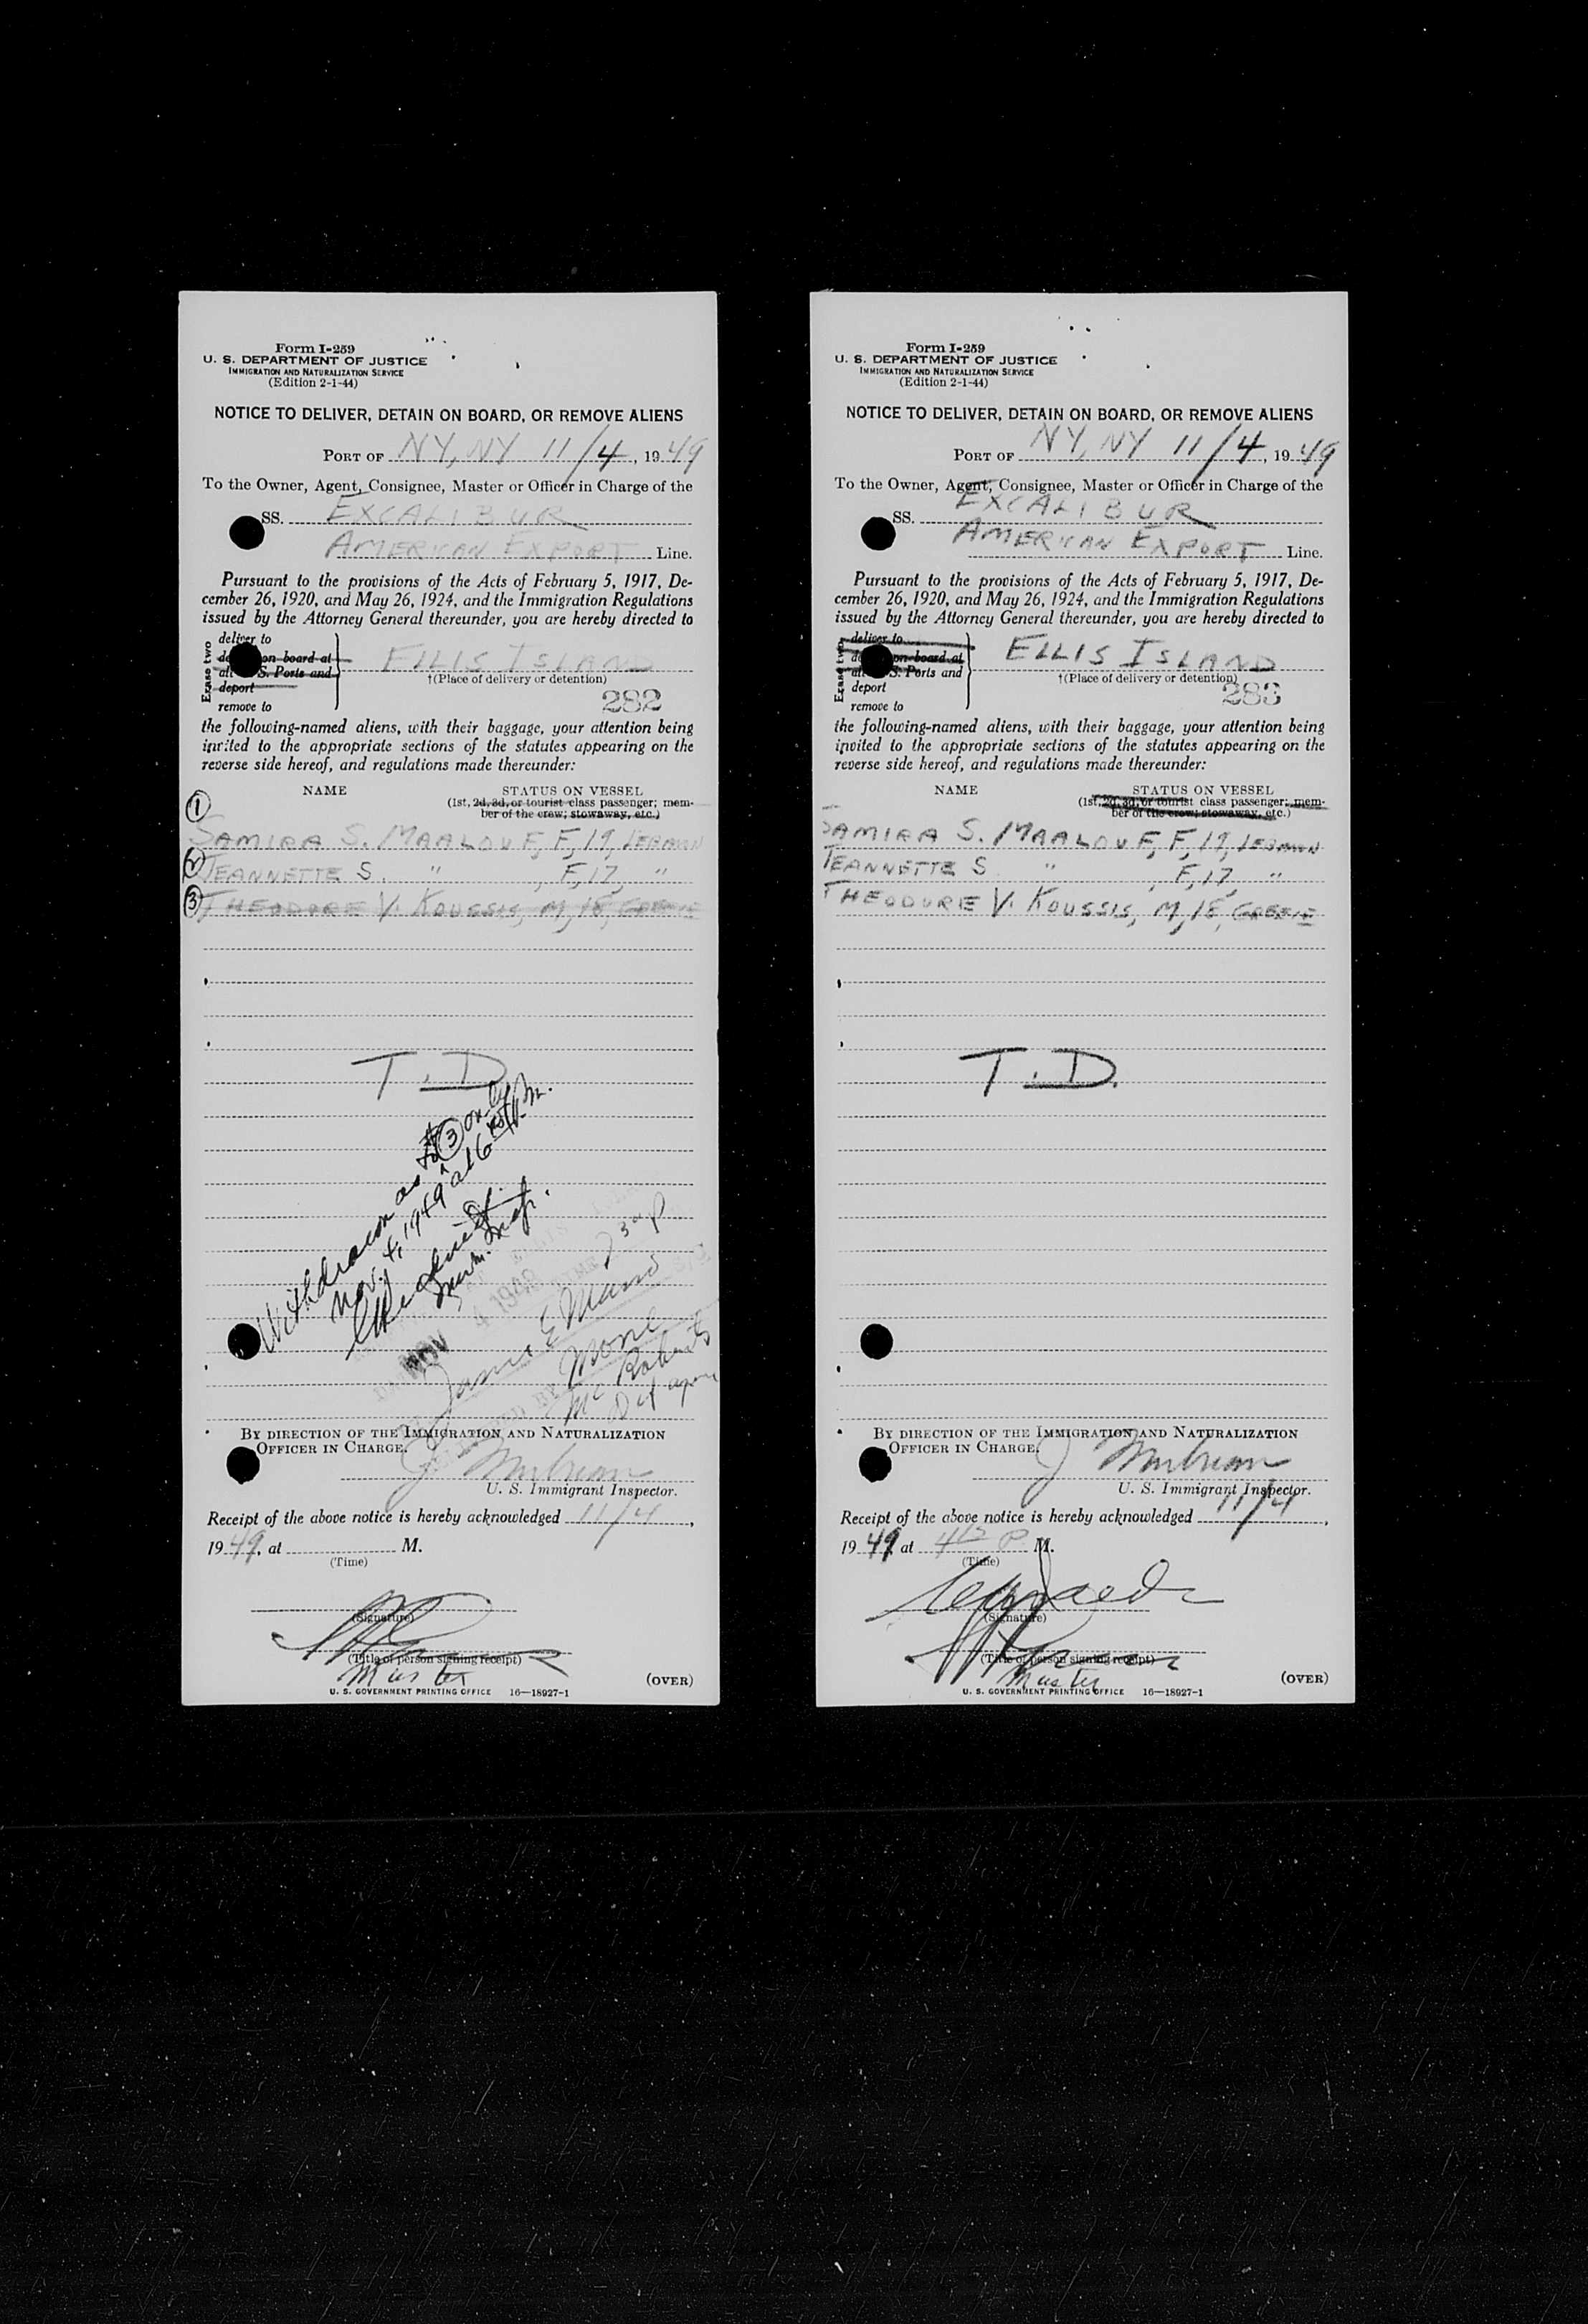 Form I-259
U. S. DEPARTMENT OF JUSTICE
IMMIGRATION AND NATURALIZATION SERVICE
(Edition 2-1-44)
NOTICE TO DELIVER, DETAIN ON BOARD, OR REMOVE ALIENS
PORT OF NY, NY 11/4, 1949
To the Owner, Agent, Consignee, Master or Officer in Charge of the
SS. EXCALIBUR
AMERICAN EXPORT Line.
Pursuant to the provisions of the Acts of February 5, 1917, De-
cember 26, 1920, and May 26, 1924, and the Immigration Regulations
issued by the Attorney General thereunder, you are hereby directed to
Erase two
deliver to
on board at
S. Ports and
deport
remove to
ELLIS ISLAND
†(Place of delivery or detention)
282
the following-named aliens, with their baggage, your attention being
invited to the appropriate sections of the statutes appearing on the
reverse side hereof, and regulations made thereunder:
NAME STATUS ON VESSEL
(1st, 2d, 3d, or tourist class passenger; mem-
ber of the crew; stowaway, etc.)
1 SAMIRA S. MAALOUF, F, 19, LEBANON
2 JEANNETTE S. " , F, 17, "
3 THEODORE V. KOUSSIS, M, 18, GREECE
T. D.
Withdrawn as to #3 only
Nov. 4, 1949 at 6 P.M.
Imm. Insp.
NOV 4 1949
James E Mann
Mc Roberts
BY DIRECTION OF THE IMMIGRATION AND NATURALIZATION
OFFICER IN CHARGE.
U. S. Immigrant Inspector.
Receipt of the above notice is hereby acknowledged 11/4,
1949, at M.
(Time)
(Signature)
(Title of person signing receipt)
Master
(OVER)
U. S. GOVERNMENT PRINTING OFFICE 16—18927-1
Form I-259
U. S. DEPARTMENT OF JUSTICE
IMMIGRATION AND NATURALIZATION SERVICE
(Edition 2-1-44)
NOTICE TO DELIVER, DETAIN ON BOARD, OR REMOVE ALIENS
PORT OF NY, NY 11/4, 1949
To the Owner, Agent, Consignee, Master or Officer in Charge of the
SS. EXCALIBUR
AMERICAN EXPORT Line.
Pursuant to the provisions of the Acts of February 5, 1917, De-
cember 26, 1920, and May 26, 1924, and the Immigration Regulations
issued by the Attorney General thereunder, you are hereby directed to
Erase two
deliver to
on board at
S. Ports and
deport
remove to
ELLIS ISLAND
†(Place of delivery or detention)
283
the following-named aliens, with their baggage, your attention being
invited to the appropriate sections of the statutes appearing on the
reverse side hereof, and regulations made thereunder:
NAME STATUS ON VESSEL
(1st, 2d, 3d, or tourist class passenger; mem-
ber of the crew; stowaway, etc.)
SAMIRA S. MAALOUF, F, 19, LEBANON
JEANNETTE S " , F, 17, "
THEODORE V. KOUSSIS, M, 18, GREECE
T. D.
BY DIRECTION OF THE IMMIGRATION AND NATURALIZATION
OFFICER IN CHARGE.
U. S. Immigrant Inspector.
Receipt of the above notice is hereby acknowledged 11/4,
1949, at 4 15 P M.
(Time)
(Signature)
(Title of person signing receipt)
Master
(OVER)
U. S. GOVERNMENT PRINTING OFFICE 16—18927-1